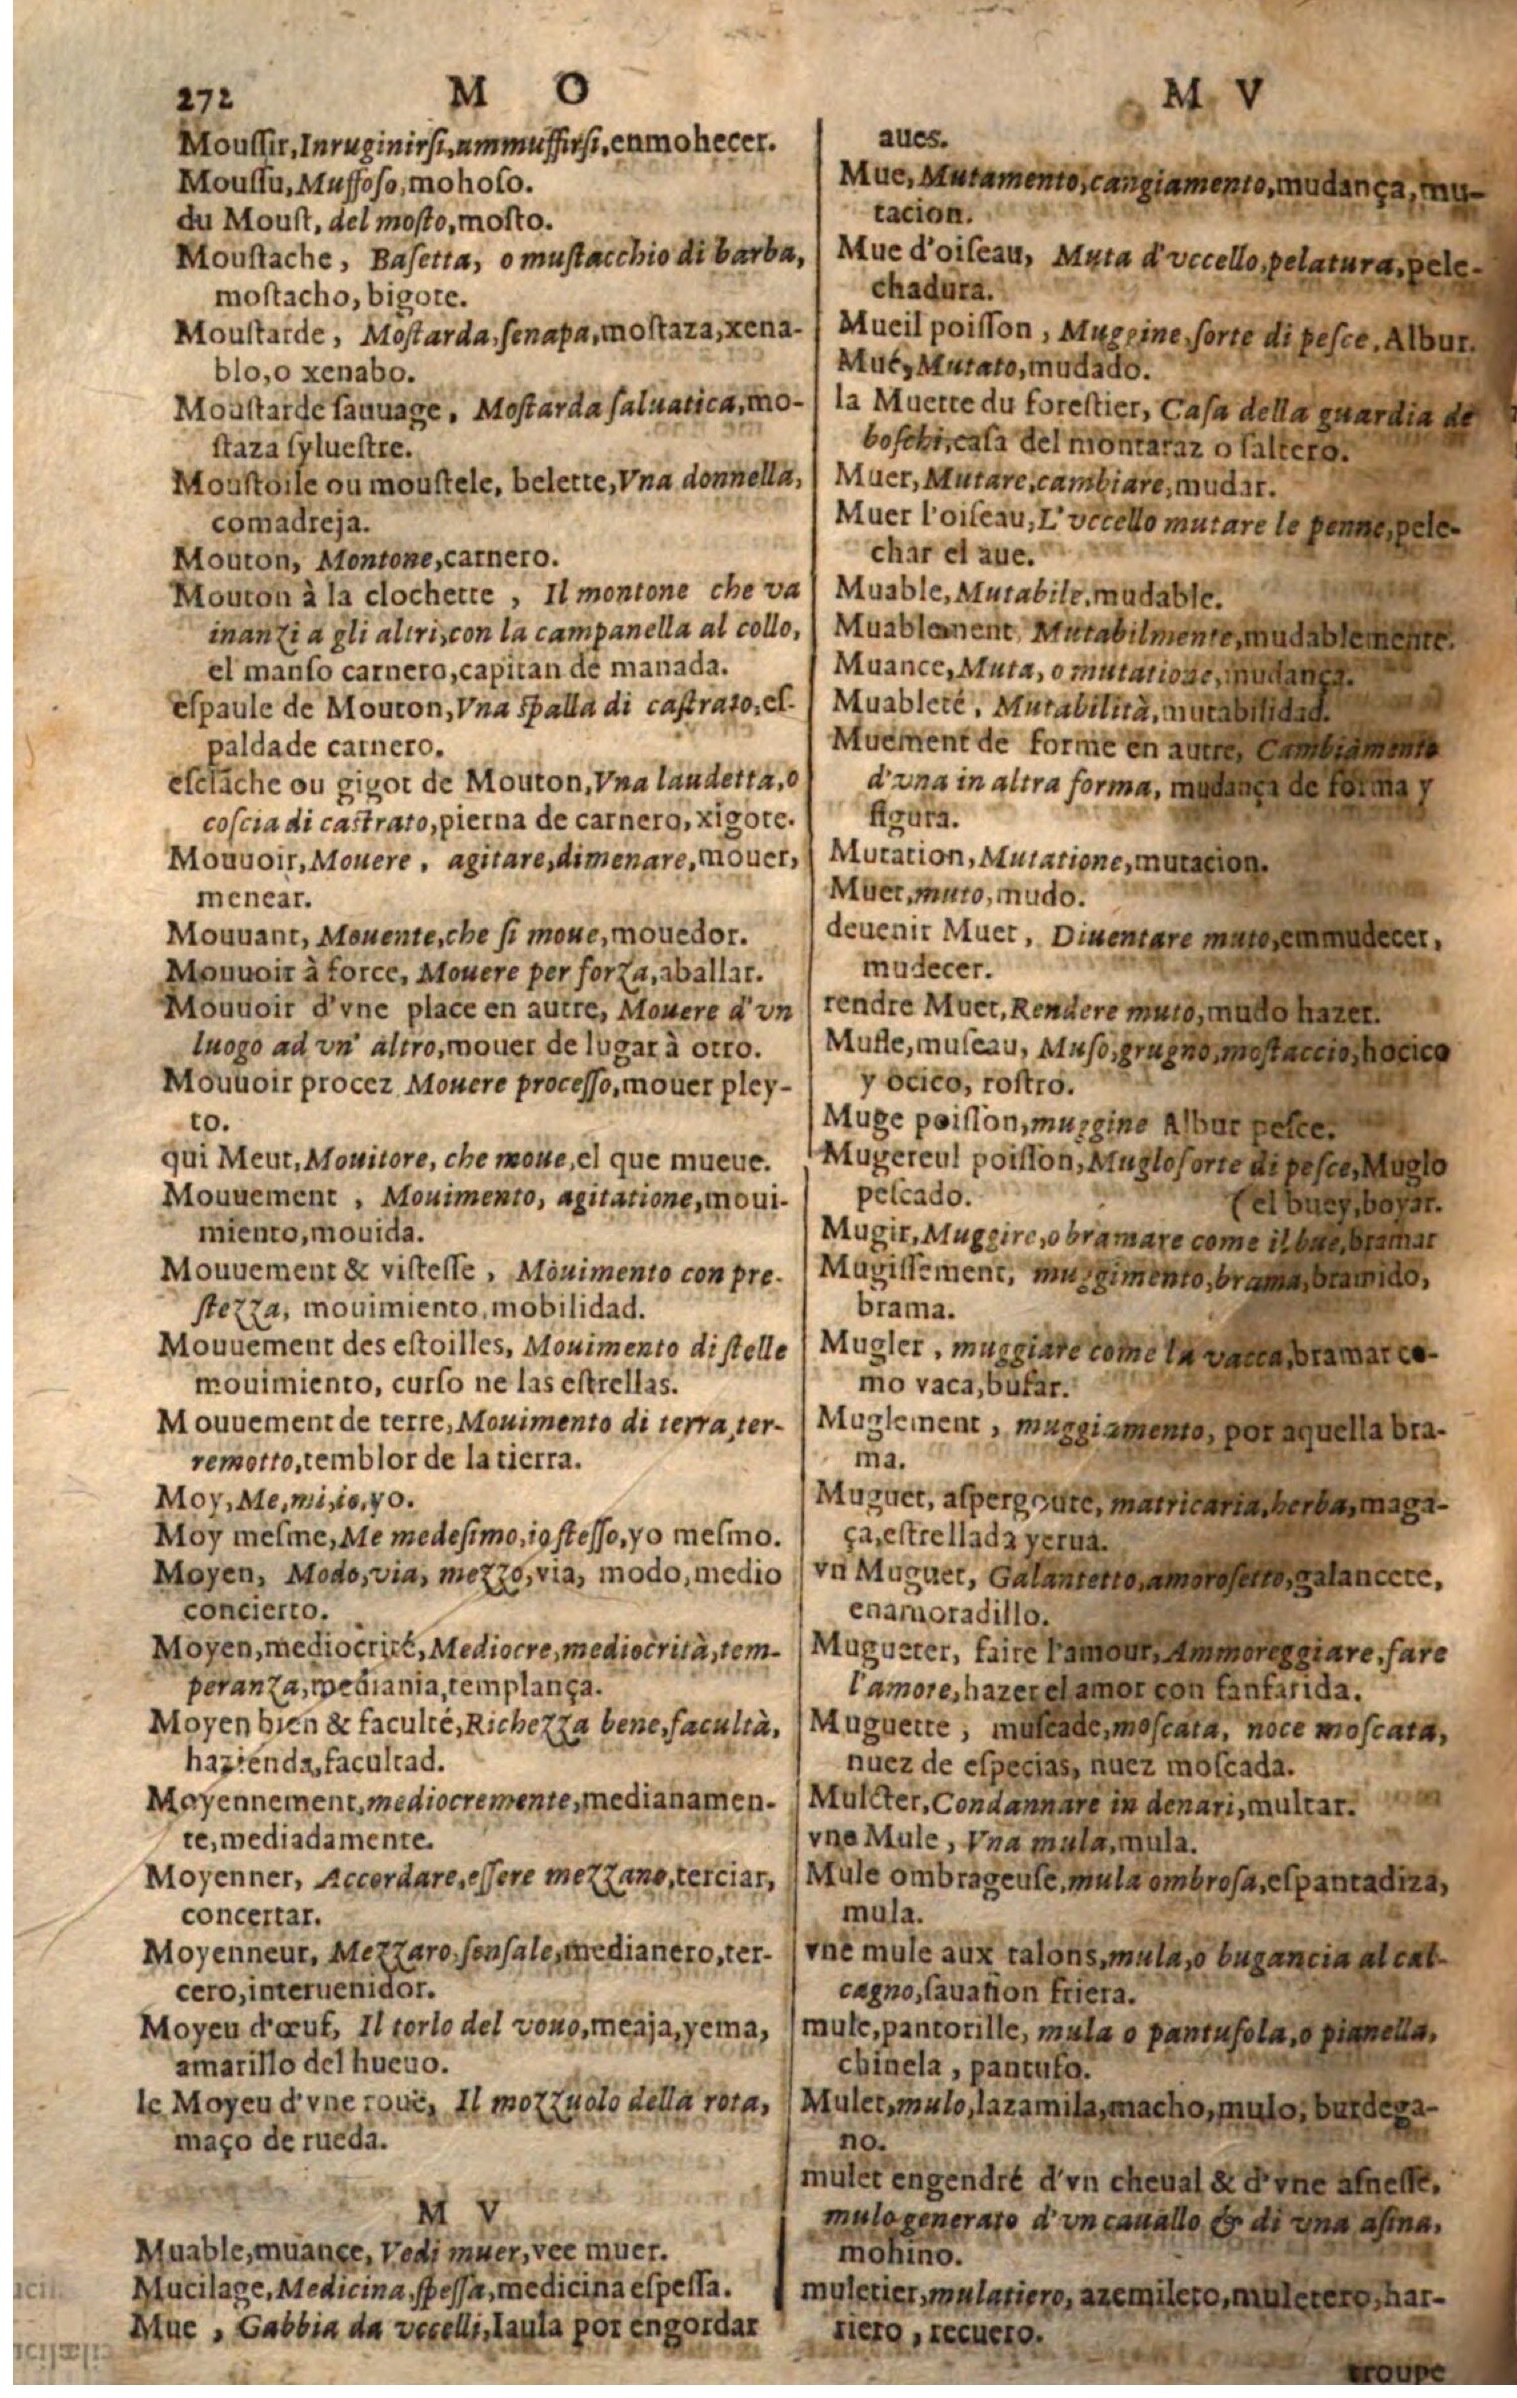 272 M O
Mouſſir, Inruginirſi, ammuffirſi, enmohecer.
Mouſſu, Muffoſo, mohoſo.
du Mouſt, del moſto, moſto.
Mouſtache, Baſetta, o muſtacchio di barba,
moſtacho, bigote.
Mouſtarde, Moſtarda, ſenapa, moſtaza, xena-
blo, o xenabo.
Mouſtarde ſauuage, Moſtarda ſaluatica, mo-
ſtaza ſylueſtre.
Mouſtoile ou mouſtele, belette, Vna donnella,
comadreja.
Mouton, Montone, carnero.
Mouton à la clochette, Il montone che va
inanzi a gli altri, con la campanella al collo,
el manſo carnero, capitan de manada.
eſpaule de Mouton, Vna ſpalla di caſtrato, eſ-
paldade carnero.
eſclãche ou gigot de Mouton, Vna laudetta, o
coſcia di caſtrato, pierna de carnero, xigote.
Mouuoir, Mouere, agitare, dimenare, mouer,
menear.
Mouuant, Mouente, che ſi moue, mouedor.
Mouuoir à force, Mouere per forza, aballar.
Mouuoir d'vne place en autre, Mouere d'vn
luogo ad vn' altro, mouer de lugar à otro.
Mouuoir procez Mouere proceſſo, mouer pley-
to.
qui Meut, Mouitore, che moue, el que mueue.
Mouuement, Mouimento, agitatione, moui-
miento, mouida.
Mouuement & viſteſſe, Mouimento con pre-
ſtezza, mouimiento, mobilidad.
Mouuement des eſtoilles, Mouimento di ſtelle
mouimiento, curſo ne las eſtrellas.
Mouuement de terre, Mouimento di terra, ter-
remotto, temblor de la tierra.
Moy, Me, mi, io, yo.
Moy meſme, Me medeſimo, io ſteſſo, yo meſmo.
Moyen, Modo, via, mezzo, via, modo, medio
concierto.
Moyen, mediocrité, Mediocre, mediocrità, tem-
peranza, mediania, templança.
Moyen bien & faculté, Richezza bene, facultà,
hazienda, facultad.
Moyennement, mediocremente, medianamen-
te, mediadamente.
Moyenner, Accordare, eſſere mezzano, terciar,
concertar.
Moyenneur, Mezzaro, ſenſale, medianero, ter-
cero, interuenidor.
Moyeu d'œuf, Il torlo del vouo, meaja, yema,
amarillo del hueuo.
le Moyeu d'vne rouë, Il mozzuolo della rota,
maço de rueda.
M V
Muable, muance, Vedi muer, vee muer.
Mucilage, Medicina, ſpeſſa, medicina eſpeſſa.
Mue, Gabbia da vccelli, Iaula por engordar
M V
aues.
Mue, Mutamento, cangiamento, mudança, mu-
tacion.
Mue d'oiſeau, Muta d'vccello, pelatura, pele-
chadura.
Mueil poiſſon, Muggine, ſorte di peſce, Albur.
Mué, Mutato, mudado.
la Muette du foreſtier, Caſa della guardia de
boſchi, caſa del montaraz o ſaltero.
Muer, Mutare, cambiare, mudar.
Muer l'oiſeau, L'vccello mutare le penne, pele-
char el aue.
Muable, Mutabile, mudable.
Muablement, Mutabilmente, mudablemente.
Muance, Muta, o mutatione, mudança.
Muableté, Mutabilità, mutabilidad.
Muement de forme en autre, Cambiamento
d'vna in altra forma, mudança de forma y
figura.
Mutation, Mutatione, mutacion.
Muet, muto, mudo.
deuenir Muet, Diuentare muto, emmudecer,
mudecer.
rendre Muet, Rendere muto, mudo hazer.
Mufle, muſeau, Muſo, grugno, moſtaccio, hocico
y ocico, roſtro.
Muge poiſſon, muggine Albur peſce.
Mugereul poiſſon, Muglo ſorte di peſce, Muglo
peſcado. (el buey, boyar.
Mugir, Muggire, o bramare come il bue, bramar
Mugiſſement, muggimento, brama, bramido,
brama.
Mugler, muggiare come la vacca, bramar co-
mo vaca, bufar.
Muglement, muggiamento, por aquella bra-
ma.
Muguet, aſpergoute, matricaria, herba, maga-
ça, eſtrellada yerua.
vn Muguet, Galantetto, amoroſetto, galancete,
enamoradillo.
Mugueter, faire l'amour, Ammoreggiare, fare
l'amore, hazer el amor con fanfarida.
Muguette, muſcade, moſcata, noce moſcata,
nuez de eſpecias, nuez moſcada.
Mulcter, Condannare in denari, multar.
vne Mule, Vna mula, mula.
Mule ombrageuſe, mula ombroſa, eſpantadiza,
mula.
vne mule aux talons, mula, o bugancia al cal-
cagno, ſauañon friera.
mule, pantoille, mula o pantufola, o pianella,
chinela, pantufo.
Mulet, mulo, lazamila, macho, mulo, burdega-
no.
mulet engendré d'vn cheual & d'vne aſneſſe,
mulo generato d'vn cauallo & di vna aſina,
mohino.
muletier, mulatiero, azemilero, muletero, har-
riero, recuero.
troupe